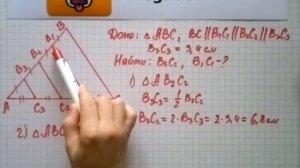 Дано: △ABC, BC||B₁C₁||B₂C₂||B₃C₃
B₃C₃ = 3,4 см
Найти: B₂C₂, B₁C₁ - ?
1) △AB₂C₂
B₃C₃ = ½ B₂C₂
B₂C₂ = 2·B₃C₃ = 2·3,4 = 6,8 см
B
B₁
B₂
B₃
A C₃ C₂
2) △ABC